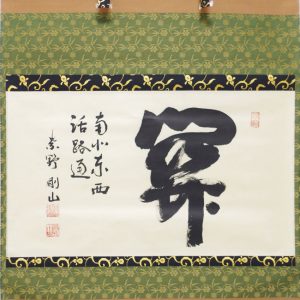 関
南北東西
活路通
紫野 剛山